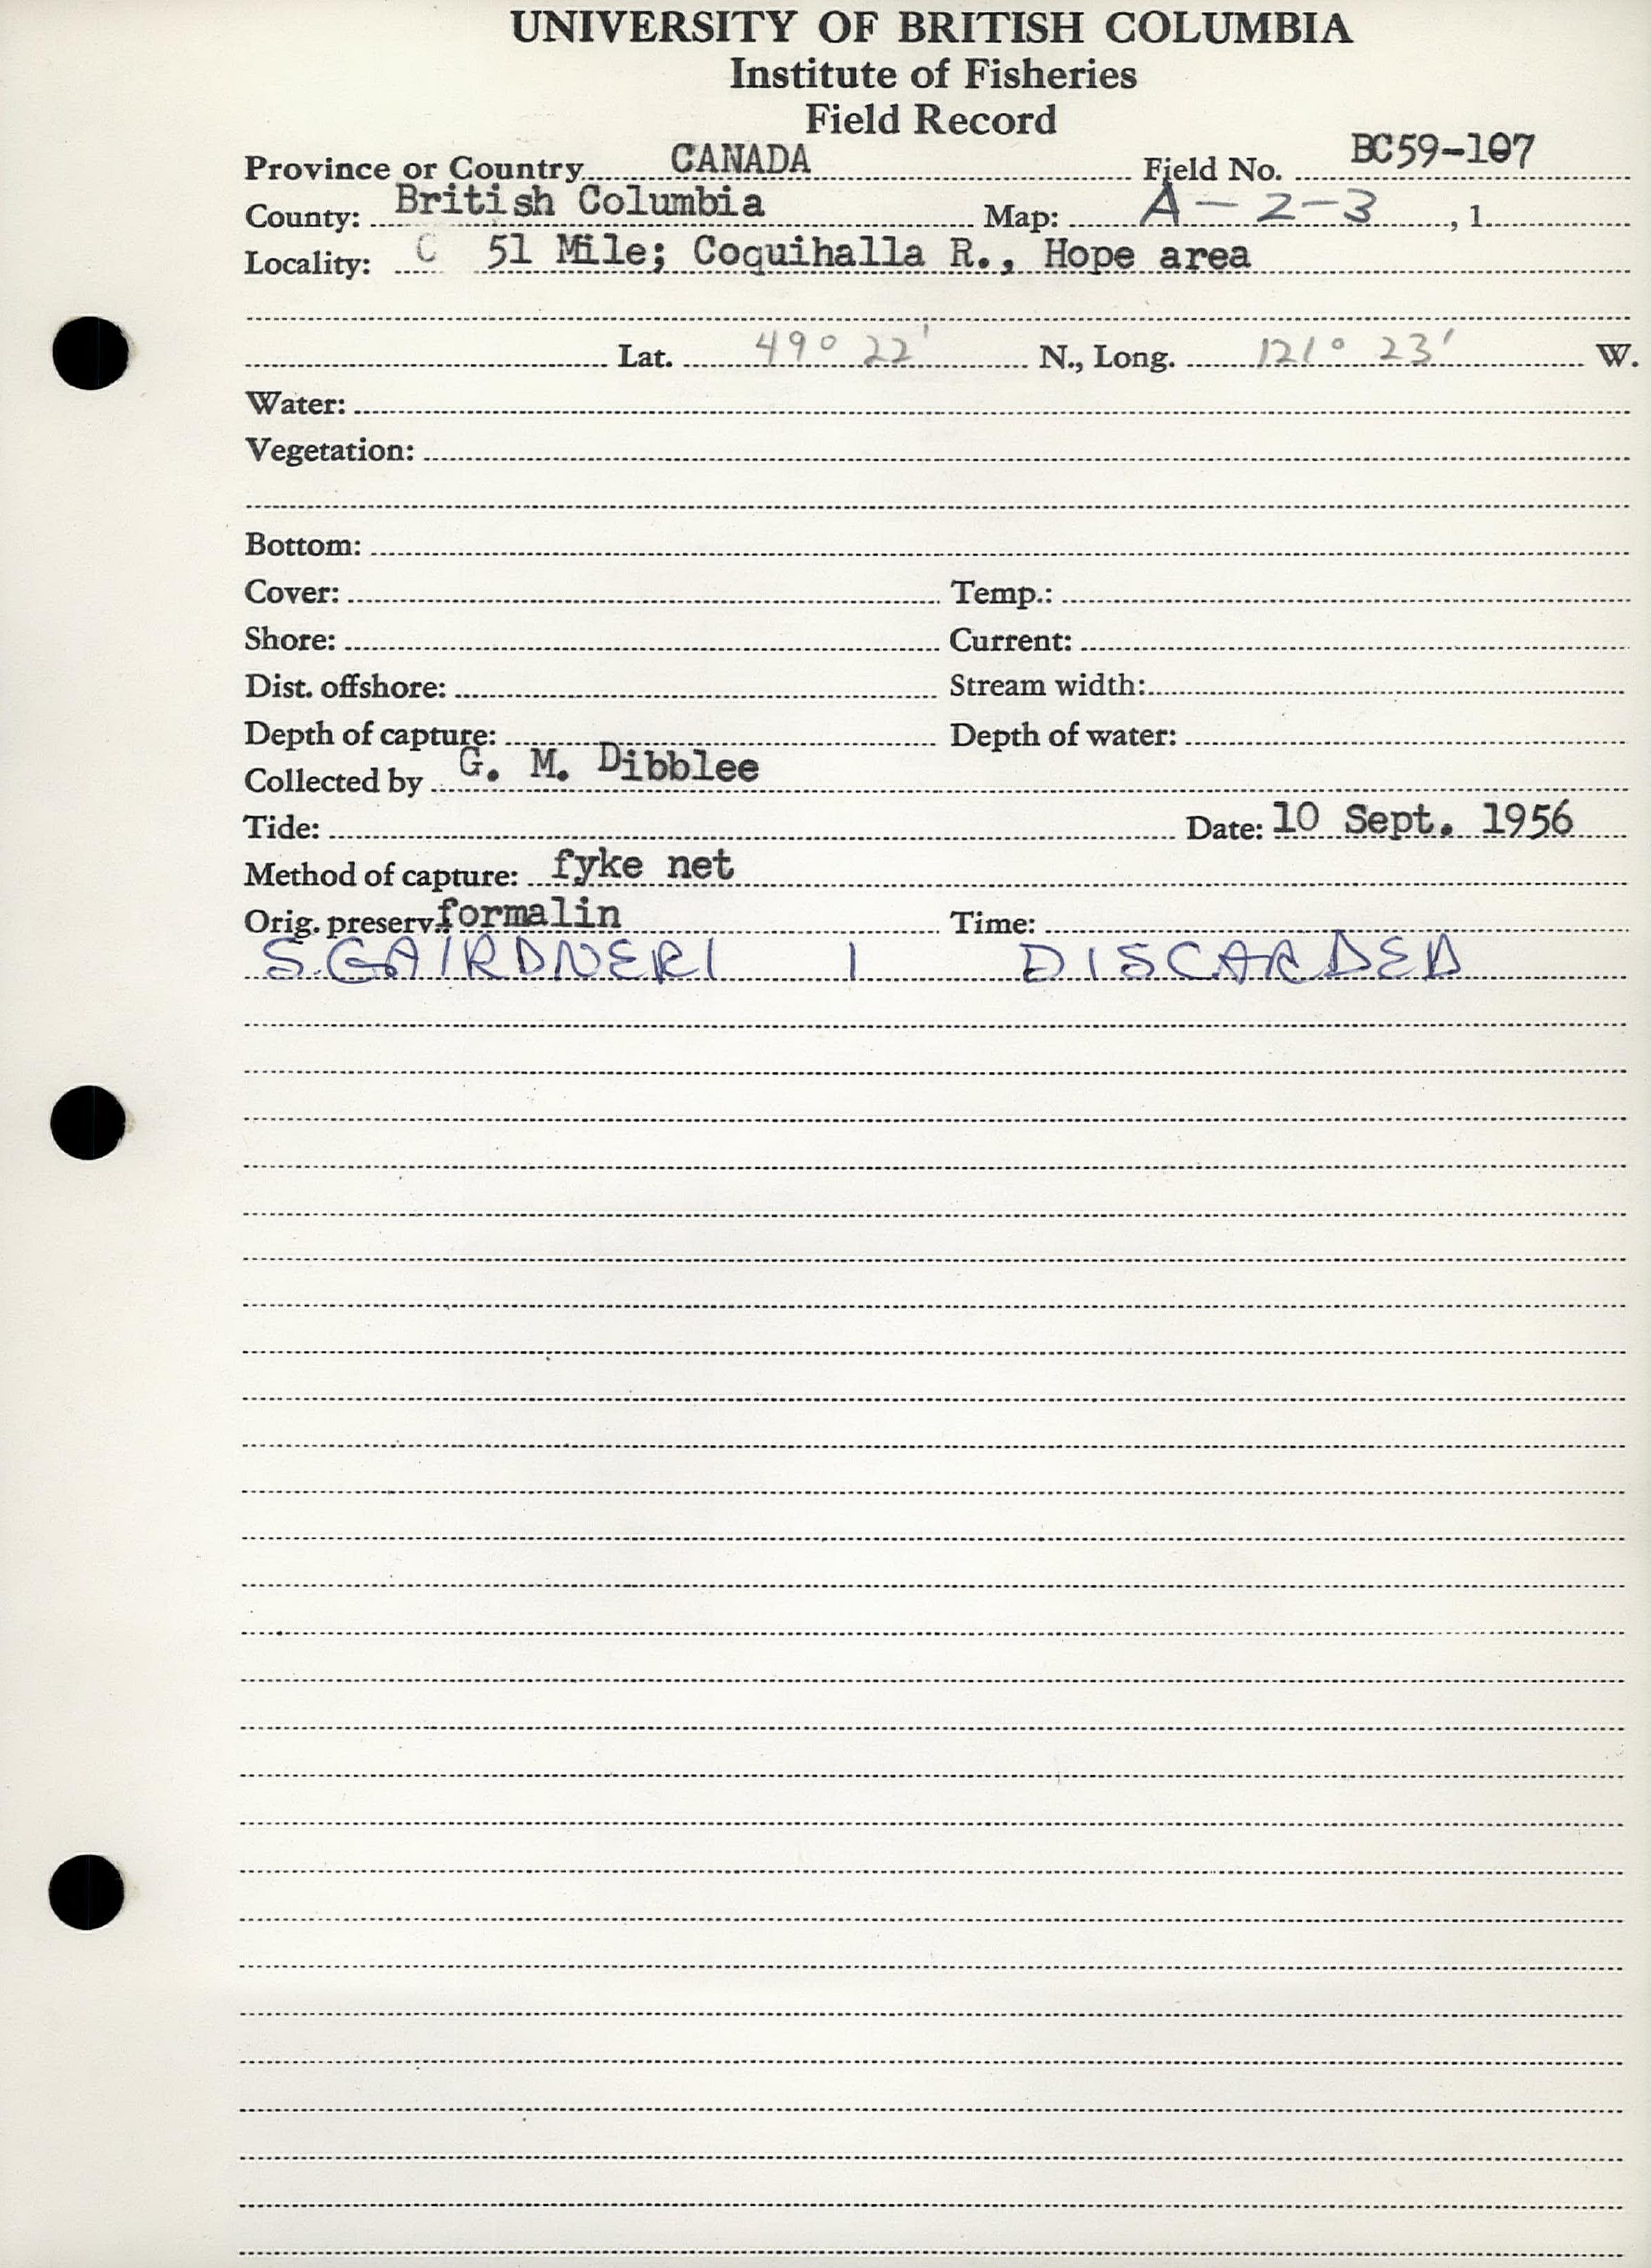 UNIVERSITY OF BRITISH COLUMBIA
Institute of Fisheries
Field Record
Province or Country CANADA Field No. BC59-107
County: British Columbia Map: A-2-3, 1
Locality: C 51 Mile; Coquihalla R., Hope area
Lat. 49° 22' N., Long. 121° 23' W.
Water:
Vegetation:
Bottom:
Cover: Temp.:
Shore: Current:
Dist. offshore: Stream width:
Depth of capture: Depth of water:
Collected by G. M. Dibblee
Tide: Date: 10 Sept. 1956
Method of capture: fyke net
Orig. preserv.: formalin Time:
S. GAIRDNERI 1 DISCARDED